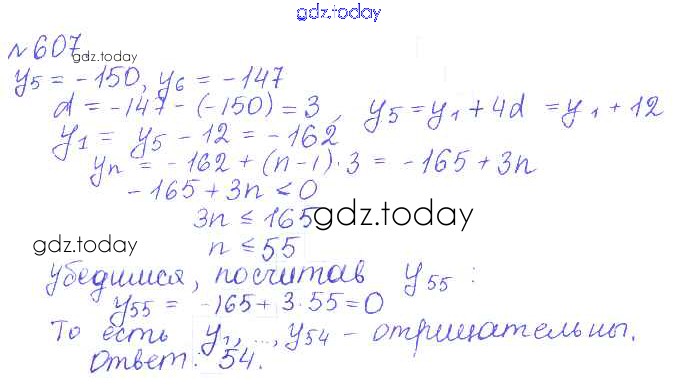 gdz.today
№607
gdz.today
y5 = -150, y6 = -147
d = -147 - (-150) = 3, y5 = y1 + 4d = y1 + 12
y1 = y5 - 12 = -162
yn = -162 + (n-1)·3 = -165 + 3n
-165 + 3n < 0
3n ≤ 165
gdz.today
gdz.today
n ≤ 55
Убедимся, посчитав y55 :
y55 = -165 + 3·55 = 0
То есть y1, ..., y54 - отрицательны.
Ответ: 54.